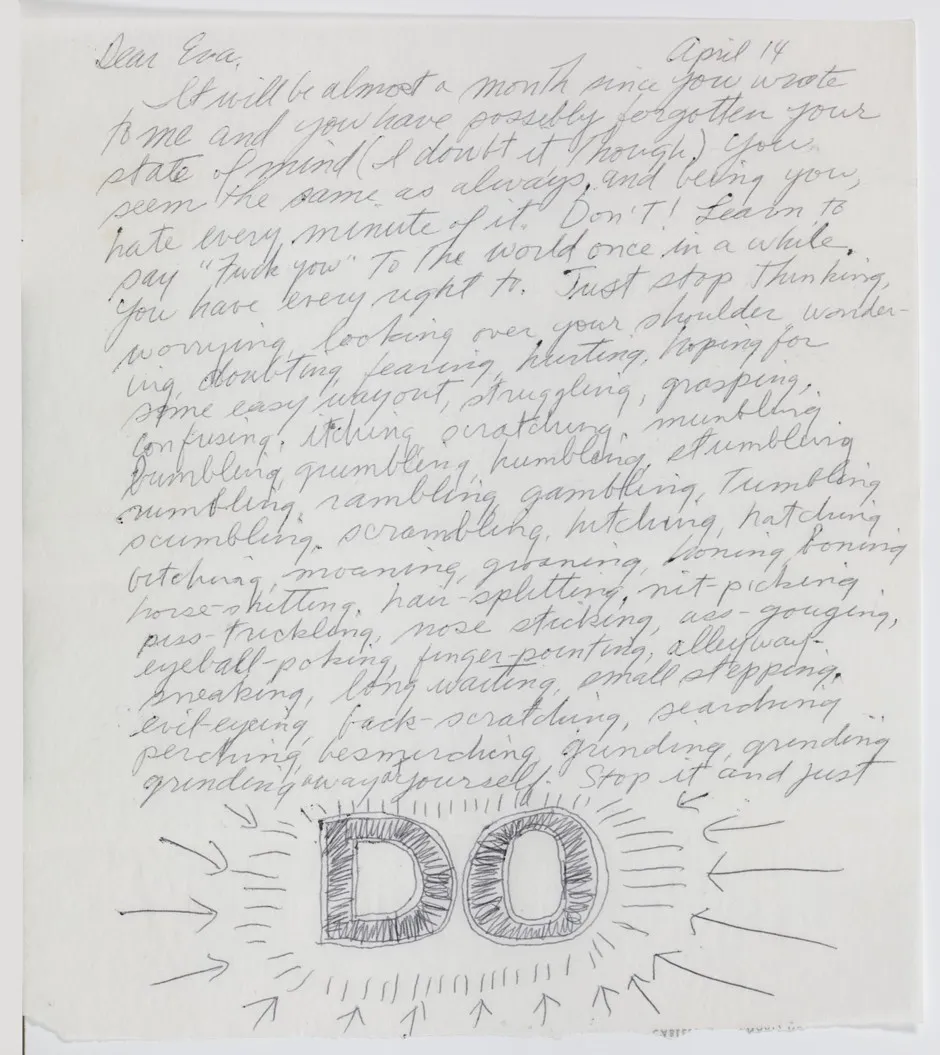 Dear Eva, April 14
It will be almost a month since you wrote
to me and you have possibly forgotten your
state of mind (I doubt it though.) You
seem the same as always, and being you,
hate every minute of it. Don't! Learn to
say "Fuck you" to the world once in a while.
You have every right to. Just stop thinking,
worrying, looking over your shoulder, wonder-
ing, doubting, fearing, hurting, hoping for
some easy way out, struggling, grasping,
confusing, itching, scratching, mumbling
bumbling, grumbling, humbling, stumbling
numbling, rambling, gambling, tumbling
scumbling, scrambling, hitching, hatching
bitching, moaning, groaning, honing, boning
horse-shitting, hair-splitting, nit-picking
piss-trickling, nose sticking, ass-gouging,
eyeball-poking, finger-pointing, alleyway-
sneaking, long waiting, small stepping,
evil-eyeing, back-scratching, searching
perching, besmirching, grinding, grinding
grinding away at yourself. Stop it and just
DO